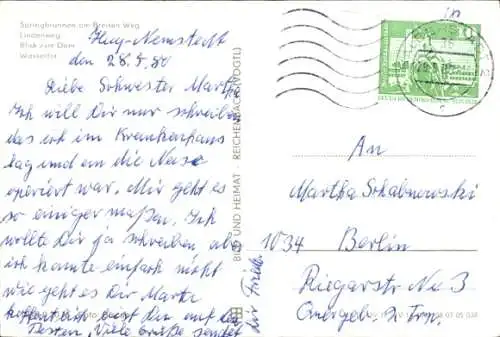 Springbrunnen am Breiten Weg
Lindenweg
Blick zum Dom
Wassertor
Huy-Neinstedt
den 28.9.80
Liebe Schwester Martha
Ich will Dir nur schreiben
das ich im Krankenhaus
lag und an die Nase
operiert war. Mir geht es
so einiger maßen. Ich
wollte Dir ja schreiben aber
ich konnte einfach nicht
wie geht es Dir Martha
hoffentlich bist Du auf dem
Posten, Viele Grüße sendet
dir Frieda
BILD UND HEIMAT REICHENBACH (VOGTL)
An
Martha Schabnowski
1034 Berlin
Rigaerstr No 3
Quergeb. 2 Trp.